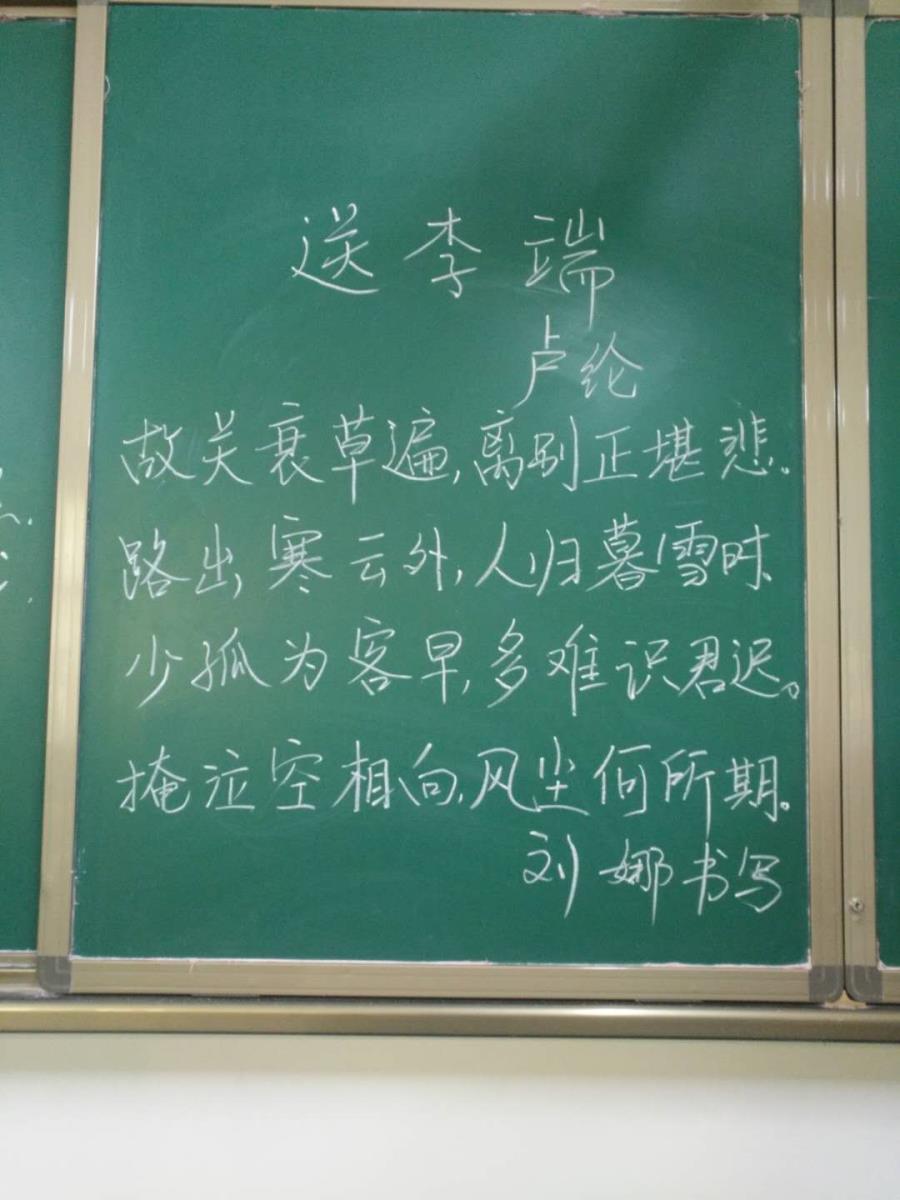 送李端
卢纶
故关衰草遍,离别正堪悲。
路出寒云外,人归暮雪时.
少孤为客早,多难识君迟。
掩泣空相向,风尘何所期。
刘娜书写